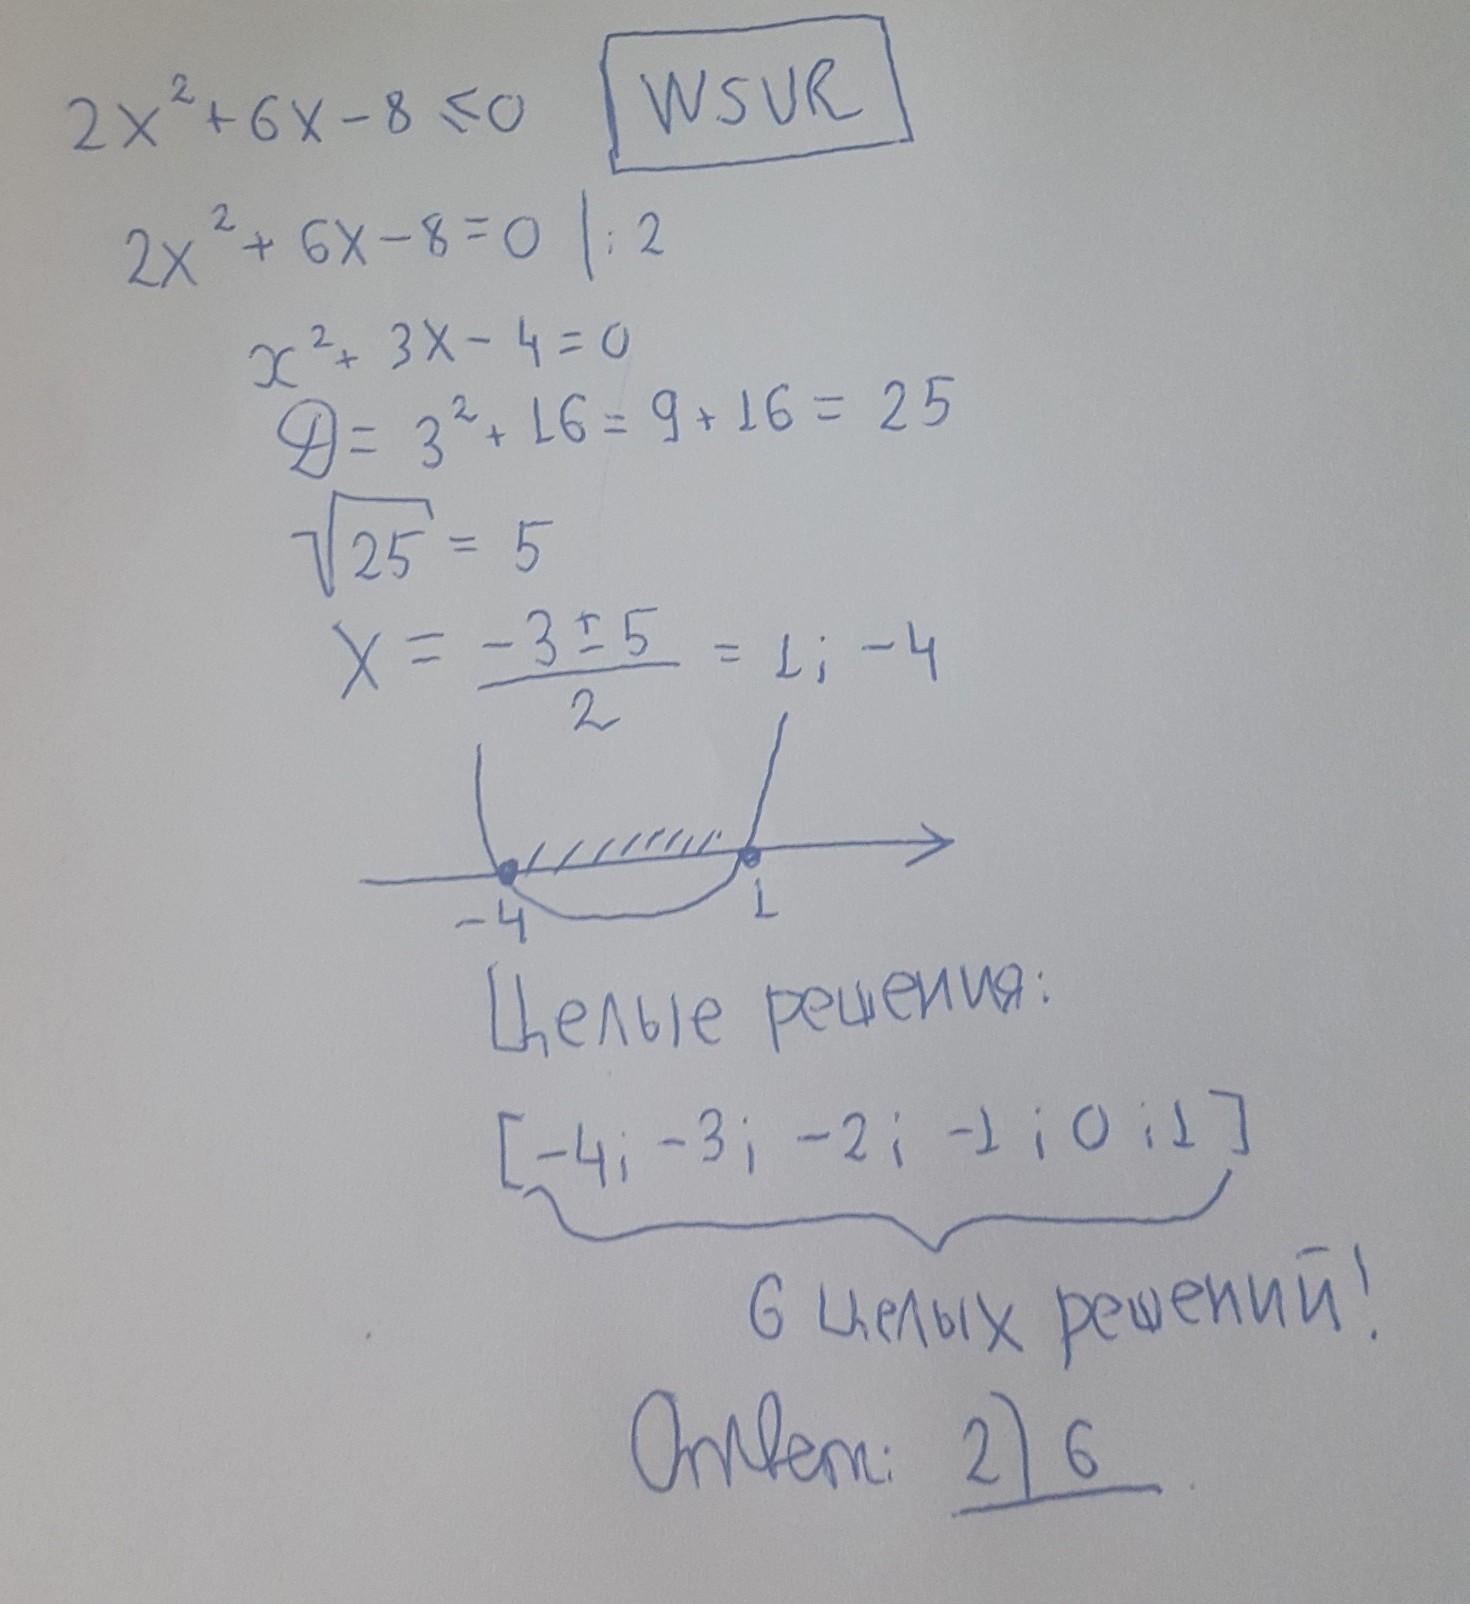 2x² + 6x - 8 ≤ 0 WSUR
2x² + 6x - 8 = 0 | : 2
x² + 3x - 4 = 0
D = 3² + 16 = 9 + 16 = 25
√25 = 5
x = (-3 ± 5)/2 = 1; -4
-4 1
Целые решения:
[-4; -3; -2; -1; 0; 1]
6 целых решений!
Ответ: 2) 6